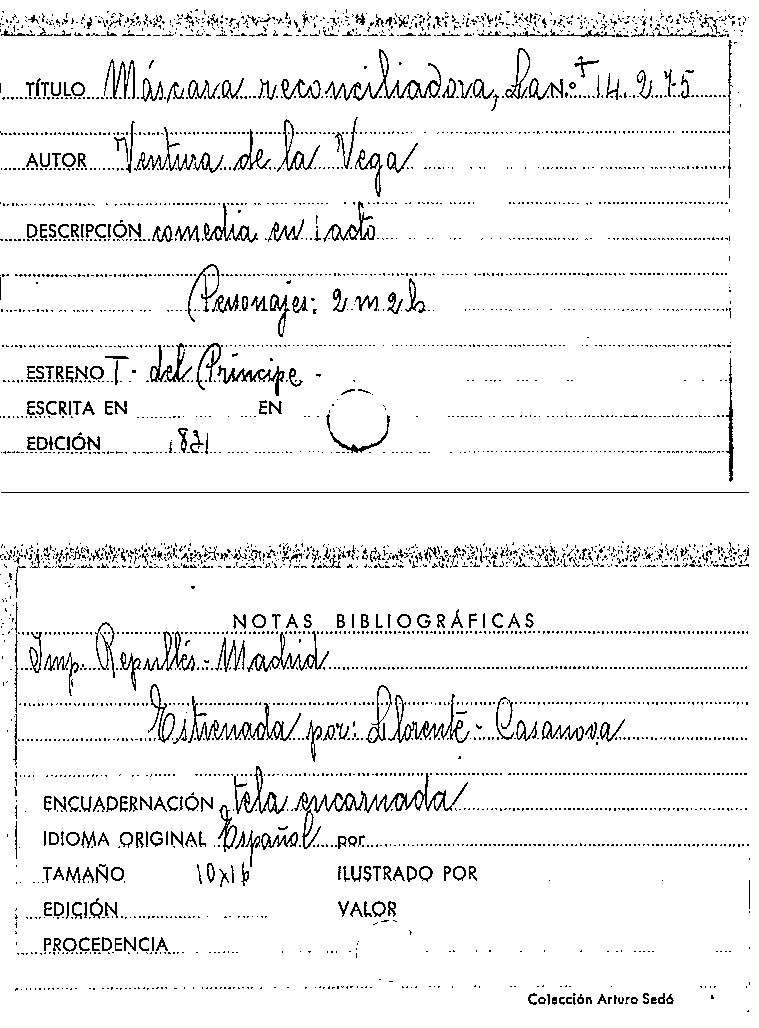 TÍTULO Máscara reconciliadora, La n.º 14.275
AUTOR Ventura de la Vega
DESCRIPCIÓN comedia en 1 acto
Personajes: 2 m 2 h
ESTRENO T. del Príncipe -
ESCRITA EN EN
EDICIÓN 1831
NOTAS BIBLIOGRÁFICAS
Imp. Repullés - Madrid
Estrenada por: Llorente - Casanova
ENCUADERNACIÓN tela encarnada
IDIOMA ORIGINAL Español por
TAMAÑO 10x16 ILUSTRADO POR
EDICIÓN VALOR
PROCEDENCIA
Colección Arturo Sedó